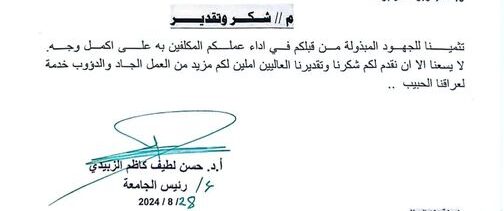 م // شكر وتقدير
تثميناً للجهود المبذولة من قبلكم في اداء عملكم المكلفين به على اكمل وجه.
لا يسعنا الا ان نقدم لكم شكرنا وتقديرنا العاليين املين لكم مزيد من العمل الجاد والدؤوب خدمة
لعراقنا الحبيب ..
أ.د. حسن لطيف كاظم الزبيدي
ع/ رئيس الجامعة
2024 / 8 / 28